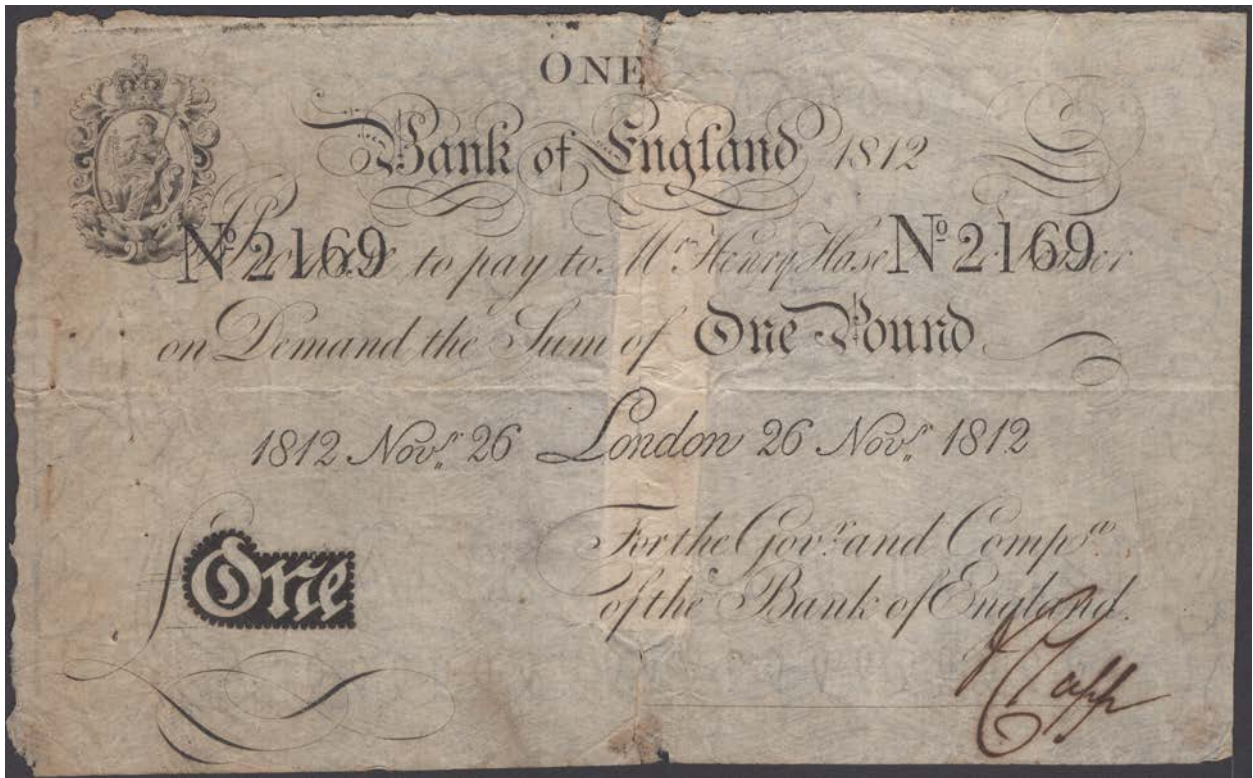 ONE
Bank of England 1812
Nº 2169 to pay to Mr. Henry Hase Nº 2169
on Demand the Sum of One Pound
1812 Novr. 26 London 26 Novr. 1812
£ One
For the Govr. and Compa.
of the Bank of England.